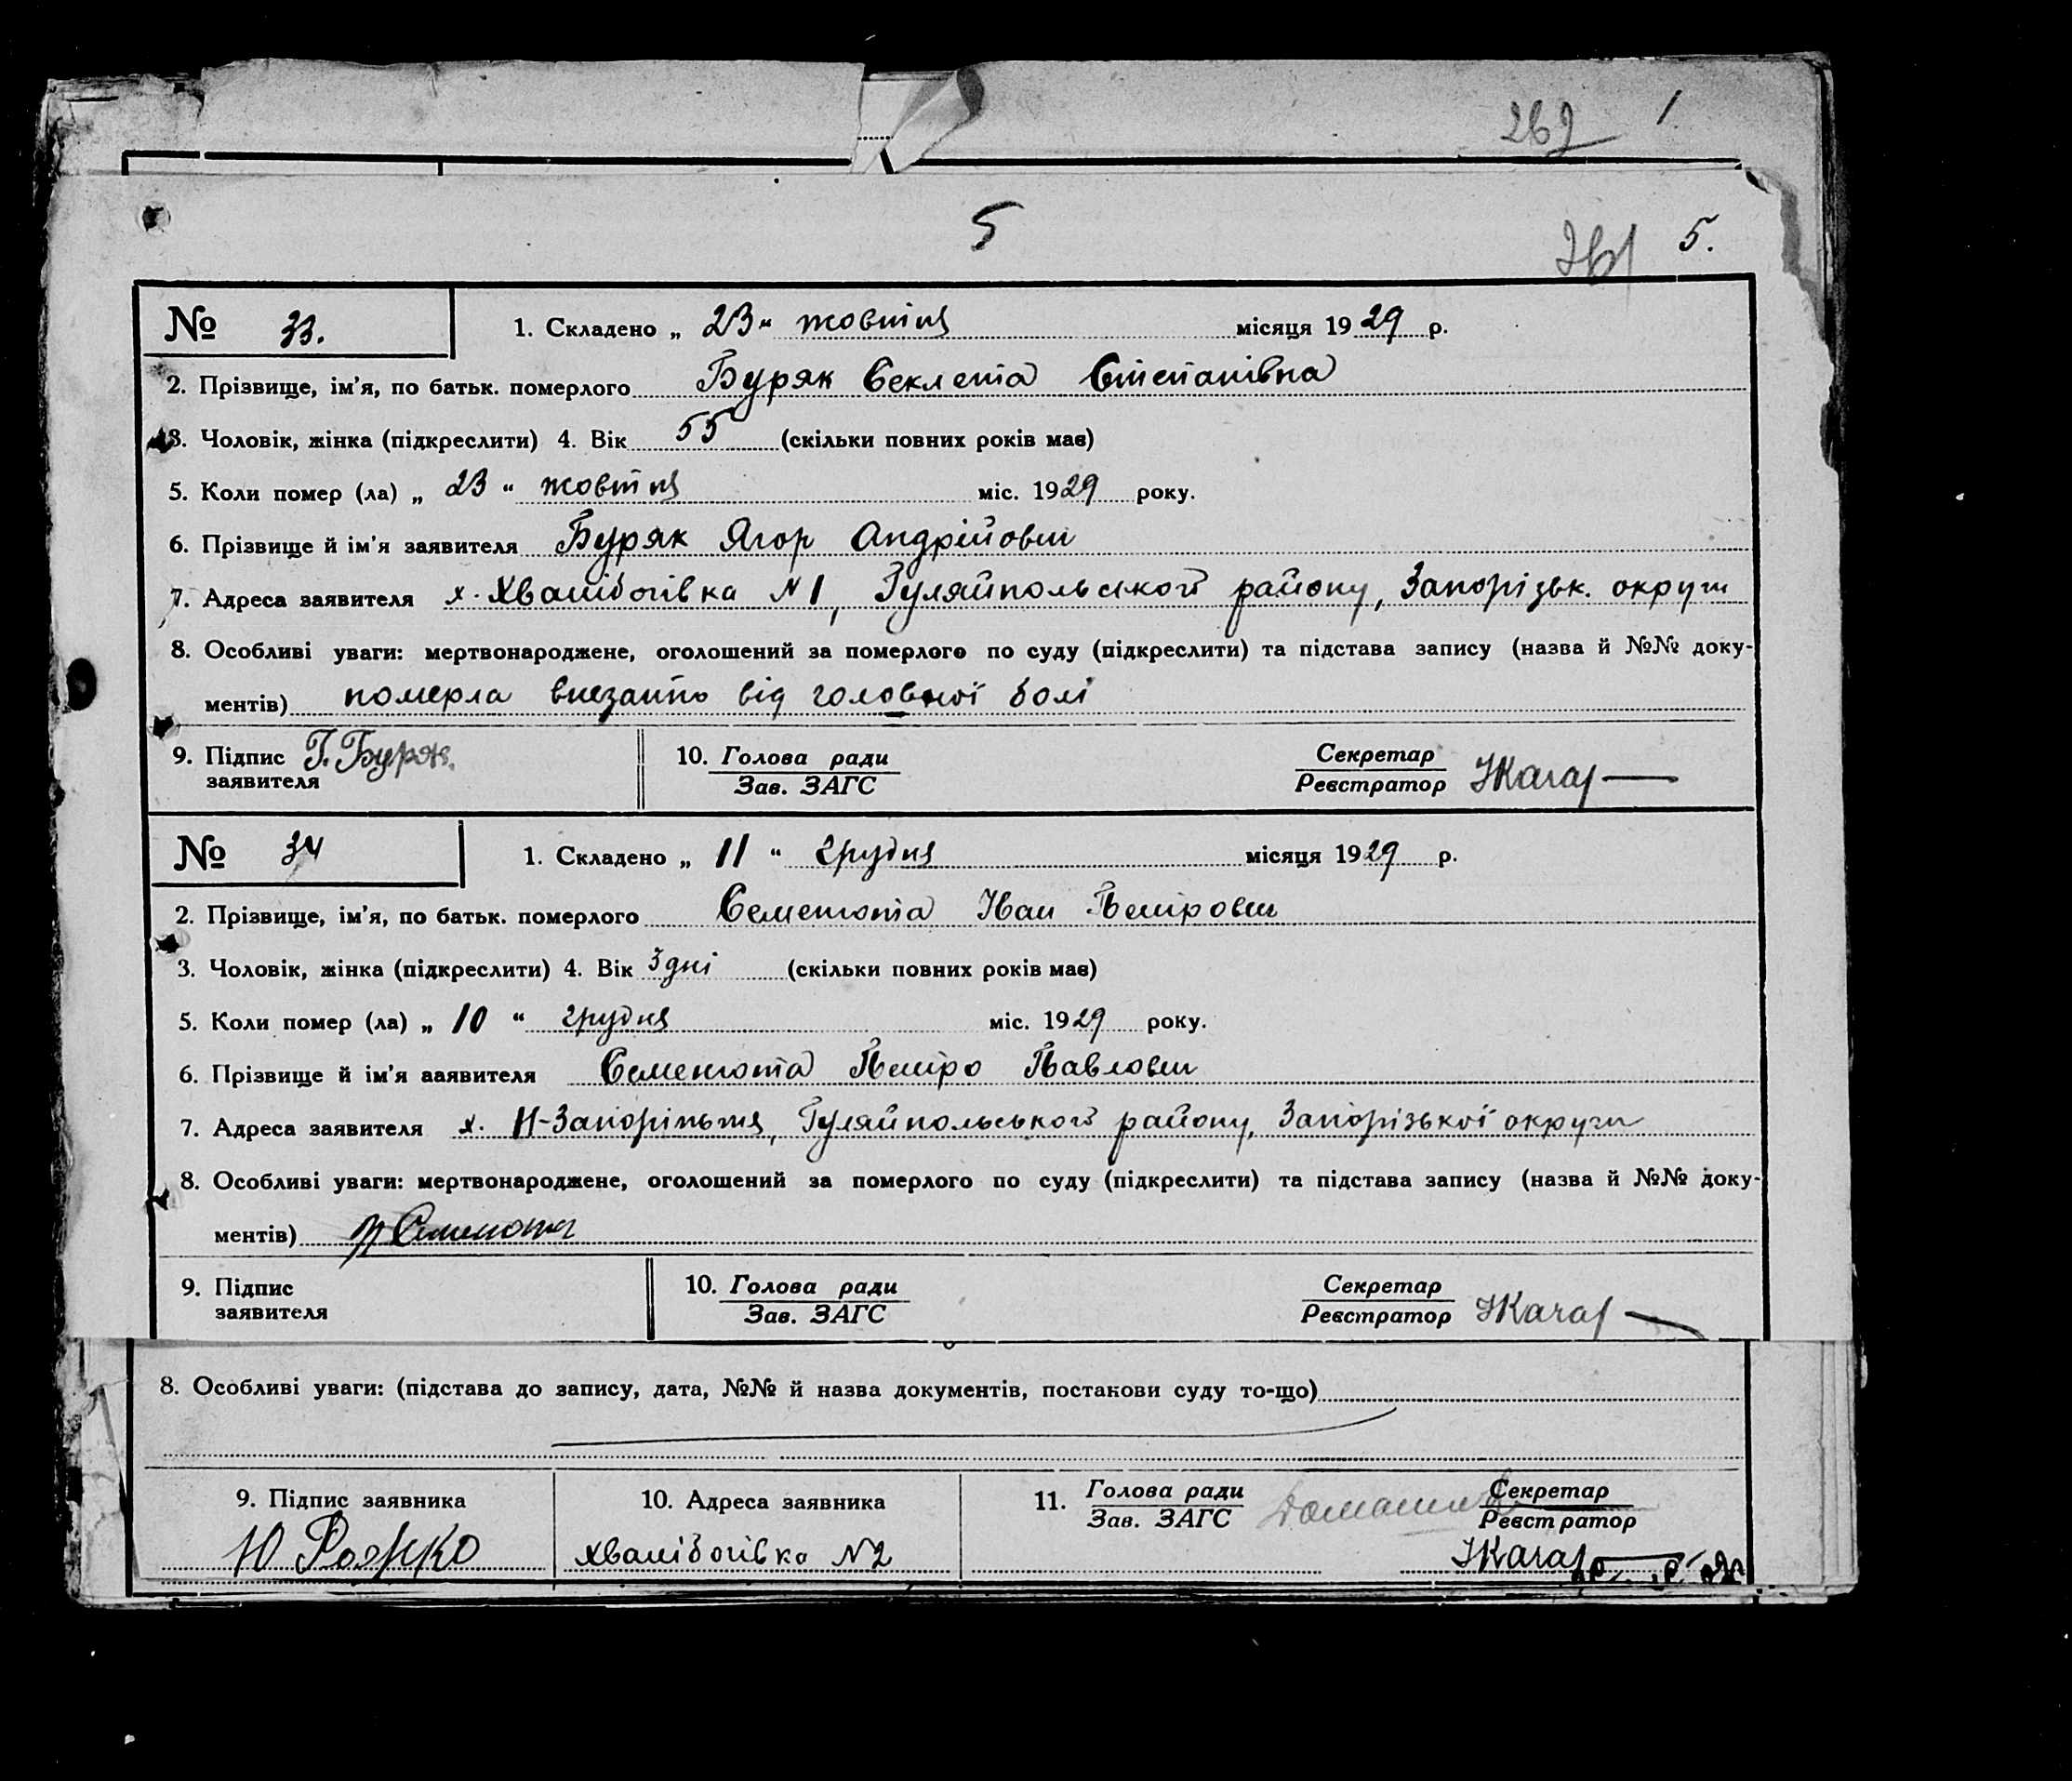 262 1
5
5.
№ 33. 1. Складено „ 23 “ жовтня місяця 1929 р.
2. Прізвище, ім'я, по батьк. померлого Буряк Секлета Степанівна
3. Чоловік, жінка (підкреслити) 4. Вік 55 (скільки повних років має)
5. Коли помер (ла) „ 23 “ жовтня міс. 1929 року.
6. Прізвище й ім'я заявителя Буряк Ягор Андрійович
7. Адреса заявителя х. Хвалібогівка N 1, Гуляйпольського району, Запорізьк. округи
8. Особливі уваги: мертвонароджене, оголошений за померлого по суду (підкреслити) та підстава запису (назва й №№ доку-
ментів) померла внезапно від головної болі
9. Підпис Г. Буряк.
заявителя
10. Голова ради
Зав. ЗАГС
Секретар
Реєстратор
№ 34 1. Складено „ 11 “ грудня місяця 1929 р.
2. Прізвище, ім'я, по батьк. померлого Семенюта Іван Петрович
3. Чоловік, жінка (підкреслити) 4. Вік 3 дні (скільки повних років має)
5. Коли помер (ла) „ 10 “ грудня міс. 1929 року.
6. Прізвище й ім'я ааявителя Семенюта Петро Павлович
7. Адреса заявителя х. Н-Запоріжжя, Гуляйпольського району, Запорізької округи
8. Особливі уваги: мертвонароджене, оголошений за померлого по суду (підкреслити) та підстава запису (назва й №№ доку-
ментів) П Семенюта
9. Підпис
заявителя
10. Голова ради
Зав. ЗАГС
Секретар
Реєстратор
8. Особливі уваги: (підстава до запису, дата, №№ й назва документів, постанови суду то-що)
9. Підпис заявника
10. Адреса заявника
11. Голова ради
Зав. ЗАГС
Секретар
Реєстратор
Ю Рожко
Хвалібогівка N 2